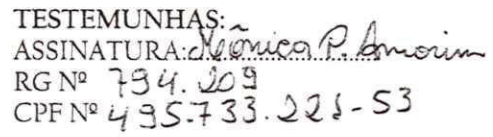 TESTEMUNHAS:
ASSINATURA: Mônica P. Amorim
RG Nº 794.209
CPF Nº 495.733.221-53